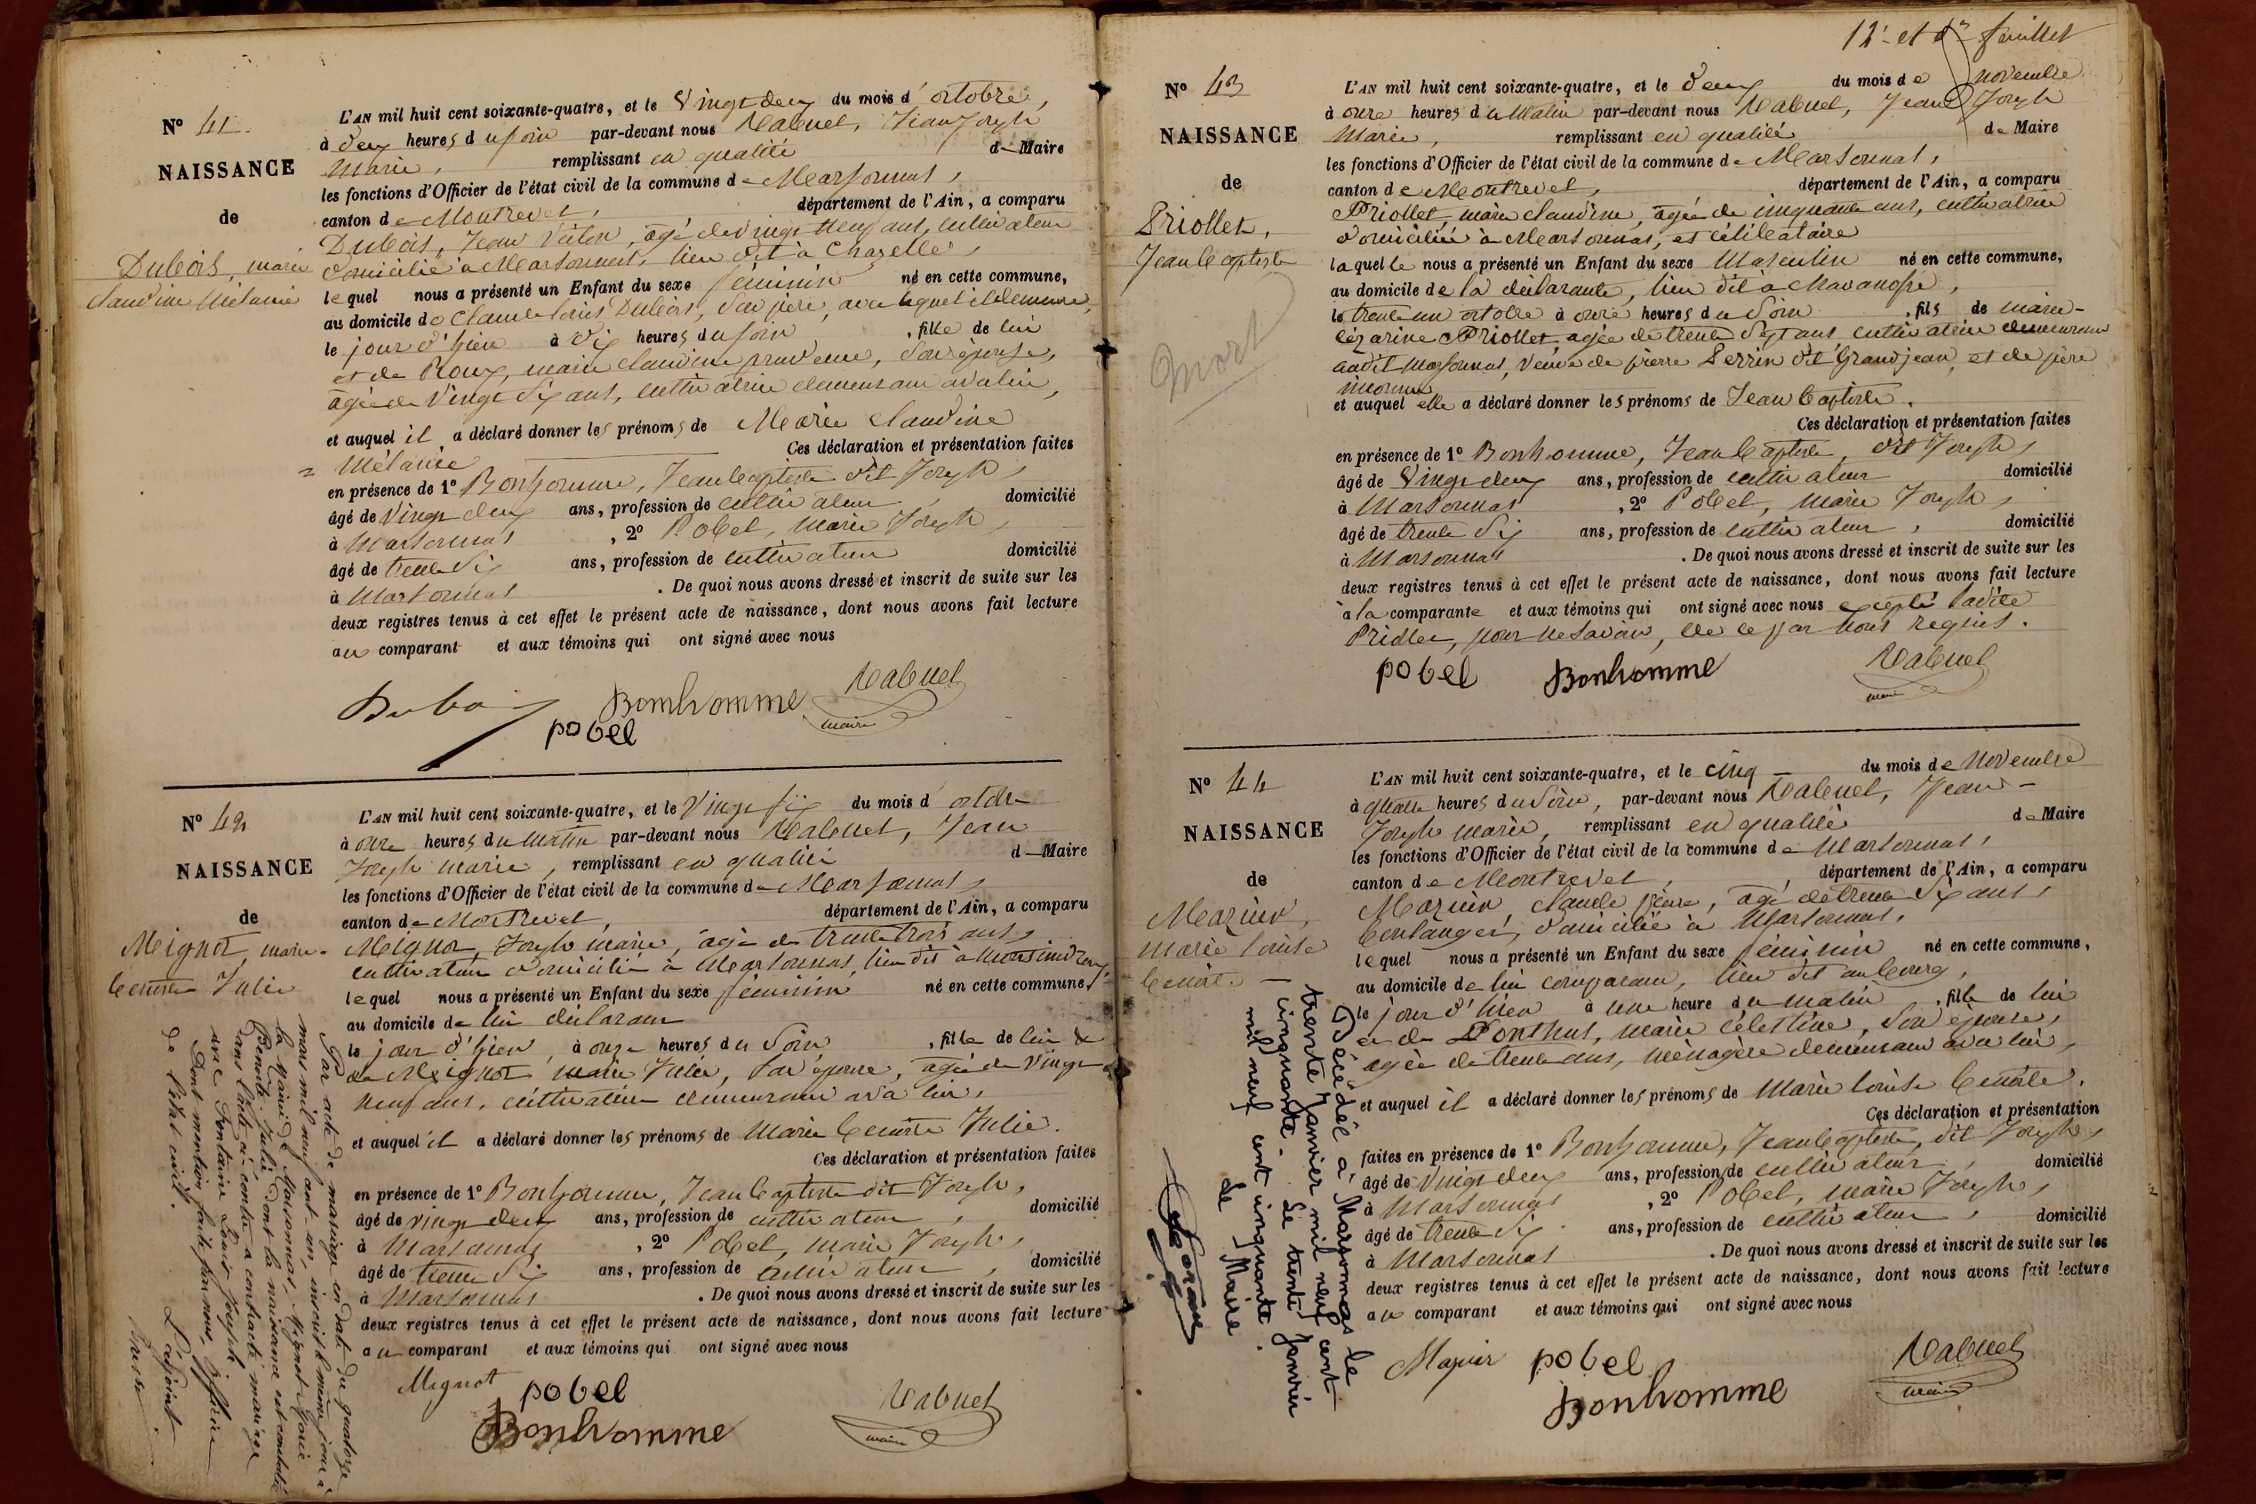 Nº 41.
NAISSANCE
de
Dubois, marie
claudine Mélanie
L'AN mil huit cent soixante-quatre, et le Vingt deux du mois d'octobre,
à deux heures du soir par-devant nous Rabuel, Jean Joseph
Marie, remplissant en qualité de Maire
les fonctions d'Officier de l'état civil de la commune de Marsonnas,
canton de Montrevel, département de l'Ain, a comparu
Dubois, Jean, agé de vingt neuf ans, cultivateur
domicilié à Marsonnas, lieu dit à Chazelle,
lequel nous a présenté un Enfant du sexe féminin né en cette commune,
au domicile de Claude Louis Dubois, son père, avec lequel il demeure,
le jour d'hier à dix heures du soir, fille de lui
et de Roux, marie claudine prudence, son épouse,
agée de vingt six ans, cultivatrice demeurant avec lui,
et auquel il a déclaré donner les prénoms de Marie claudine
= Mélanie Ces déclaration et présentation faites
en présence de 1º Bonhomme, Jean baptiste dit Joseph,
âgé de vingt deux ans, profession de cultivateur, domicilié
à Marsonnas, 2º Pobel, marie Joseph,
âgé de trente six ans, profession de cultivateur domicilié
à Marsonnas. De quoi nous avons dressé et inscrit de suite sur les
deux registres tenus à cet effet le présent acte de naissance, dont nous avons fait lecture
au comparant et aux témoins qui ont signé avec nous
Dubois Bonhomme Rabuel
pobel maire
Nº 42
NAISSANCE
de
Mignot, marie
benoite Julie
L'AN mil huit cent soixante-quatre, et le Vingt six du mois d'octobre
à onze heures du matin par-devant nous Rabuel, Jean
Joseph marie, remplissant en qualité de Maire
les fonctions d'Officier de l'état civil de la commune de Marsonnas,
canton de Montrevel, département de l'Ain, a comparu
Mignot, Joseph marie, agé de trente trois ans,
cultivateur domicilié à Marsonnas, lieu dit à
lequel nous a présenté un Enfant du sexe féminin né en cette commune,
au domicile de lui déclarant
le jour d'hier, à onze heures du soir, fille de lui &
de Mignot marie Julie, son épouse, agée de vingt
neuf ans, cultivatrice demeurant avec lui,
et auquel il a déclaré donner les prénoms de Marie benoite Julie.
Ces déclaration et présentation faites
en présence de 1º Bonhomme, Jean baptiste dit Joseph,
âgé de vingt deux ans, profession de cultivateur, domicilié
à Marsonnas, 2º Pobel, marie Joseph,
âgé de trente six ans, profession de cultivateur, domicilié
à Marsonnas. De quoi nous avons dressé et inscrit de suite sur les
deux registres tenus à cet effet le présent acte de naissance, dont nous avons fait lecture
au comparant et aux témoins qui ont signé avec nous
Mignot pobel Rabuel
Bonhomme maire
Par acte de mariage en date du quatorze
mars mil neuf cent un, inscrit le même jour à
la mairie de Marsonnas, Mignot Marie
Benoite Julie dont la naissance est constatée
dans l'acte ci-contre a contracté mariage
avec Fontaine Louis Joseph
Dont mention faite par nous officier
de l'état civil.
L'adjoint
12e et dr feuillet
Nº 43
NAISSANCE
de
Priollet,
Jean baptiste
mort
L'AN mil huit cent soixante-quatre, et le deux du mois de novembre
à onze heures du matin par-devant nous Rabuel, Jean Joseph
Marie, remplissant en qualité de Maire
les fonctions d'Officier de l'état civil de la commune de Marsonnas,
canton de Montrevel, département de l'Ain, a comparu
Priollet, marie claudine, agée de cinquante ans, cultivatrice
domiciliée à Marsonnas, et célibataire
laquelle nous a présenté un Enfant du sexe Masculin né en cette commune,
au domicile de la déclarante, lieu dit à
le trente un octobre à onze heures du soir, fils de marie-
lézarine Priollet, agée de trente sept ans cultivatrice demeurant
audit Marsonnas, veuve de pierre Perrin dit Grandjean, et de père
inconnu
et auquel elle a déclaré donner les prénoms de Jean baptiste.
Ces déclaration et présentation faites
en présence de 1º Bonhomme, Jean baptiste, dit Joseph,
âgé de Vingt deux ans, profession de cultivateur domicilié
à Marsonnas, 2º Pobel, marie Joseph,
âgé de trente six ans, profession de cultivateur, domicilié
à Marsonnas. De quoi nous avons dressé et inscrit de suite sur les
deux registres tenus à cet effet le présent acte de naissance, dont nous avons fait lecture
à la comparante et aux témoins qui ont signé avec nous excepté ladite
Priollet, pour ne savoir, de ce par nous requis.
pobel Bonhomme Rabuel
maire
Nº 44
NAISSANCE
de
Mazuir,
marie louise
benoite
L'AN mil huit cent soixante-quatre, et le cinq du mois de Novembre
à quatre heures du soir, par-devant nous Rabuel, Jean-
Joseph marie, remplissant en qualité de Maire
les fonctions d'Officier de l'état civil de la commune de Marsonnas,
canton de Montrevel, département de l'Ain, a comparu
Mazuir, claude pierre, agé de trente six ans,
boulanger, domicilié à Marsonnas,
lequel nous a présenté un Enfant du sexe féminin né en cette commune,
au domicile de lui comparant, lieu dit au bourg,
le jour d'hier à une heure du matin, fille de lui
et de Ponthus, marie célestine, son épouse,
agée de trente ans, ménagère demeurant avec lui,
et auquel il a déclaré donner les prénoms de Marie louise benoite.
Ces déclaration et présentation
faites en présence de 1º Bonhomme, Jean baptiste, dit Joseph,
âgé de vingt deux ans, profession de cultivateur, domicilié
à Marsonnas, 2º Pobel, marie Joseph,
âgé de trente six ans, profession de cultivateur, domicilié
à Marsonnas. De quoi nous avons dressé et inscrit de suite sur les
deux registres tenus à cet effet le présent acte de naissance, dont nous avons fait lecture
au comparant et aux témoins qui ont signé avec nous
Mazuir pobel Rabuel
Bonhomme maire
Décédée à Marsonnas le
trente Janvier mil neuf cent
cinquante. Le trente Janvier
mil neuf cent cinquante.
Le Maire